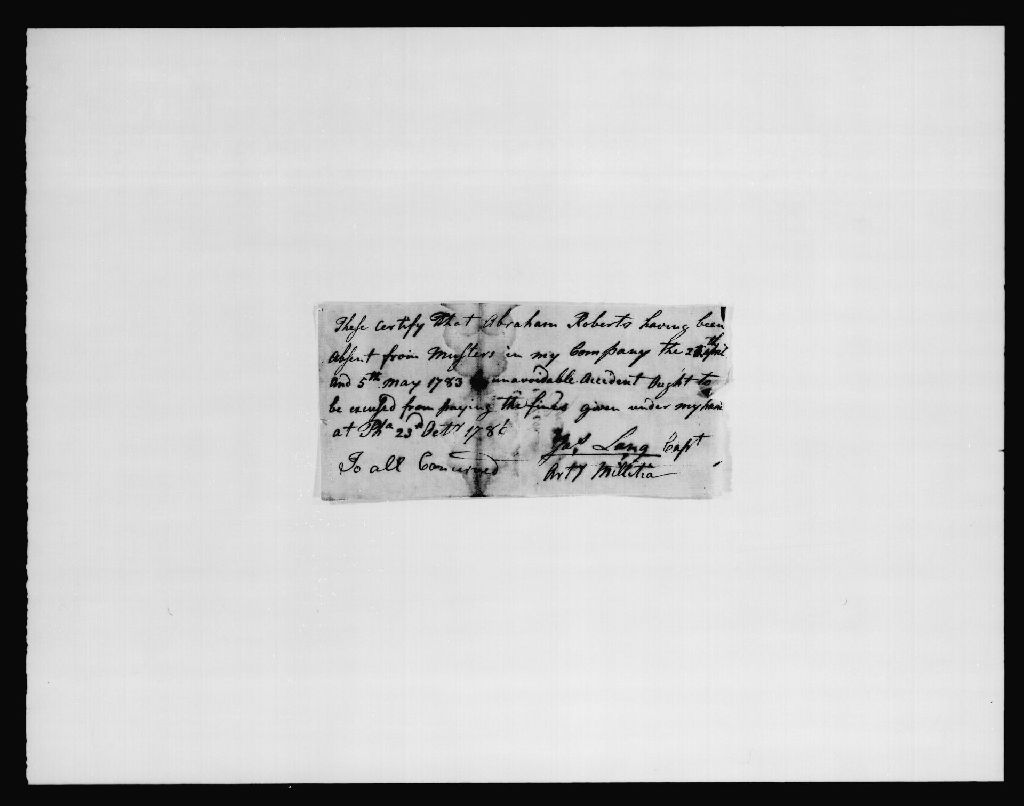 These certify that Abraham Roberts having been
absent from Musters in my Company the 28th April
and 5th May 1783 unavoidable Accident Ought to
be excused from paying the fines given under my hand
at Pha 23d Octr 178
To all Concerned
Jas Lang Capt
Arty Millitia